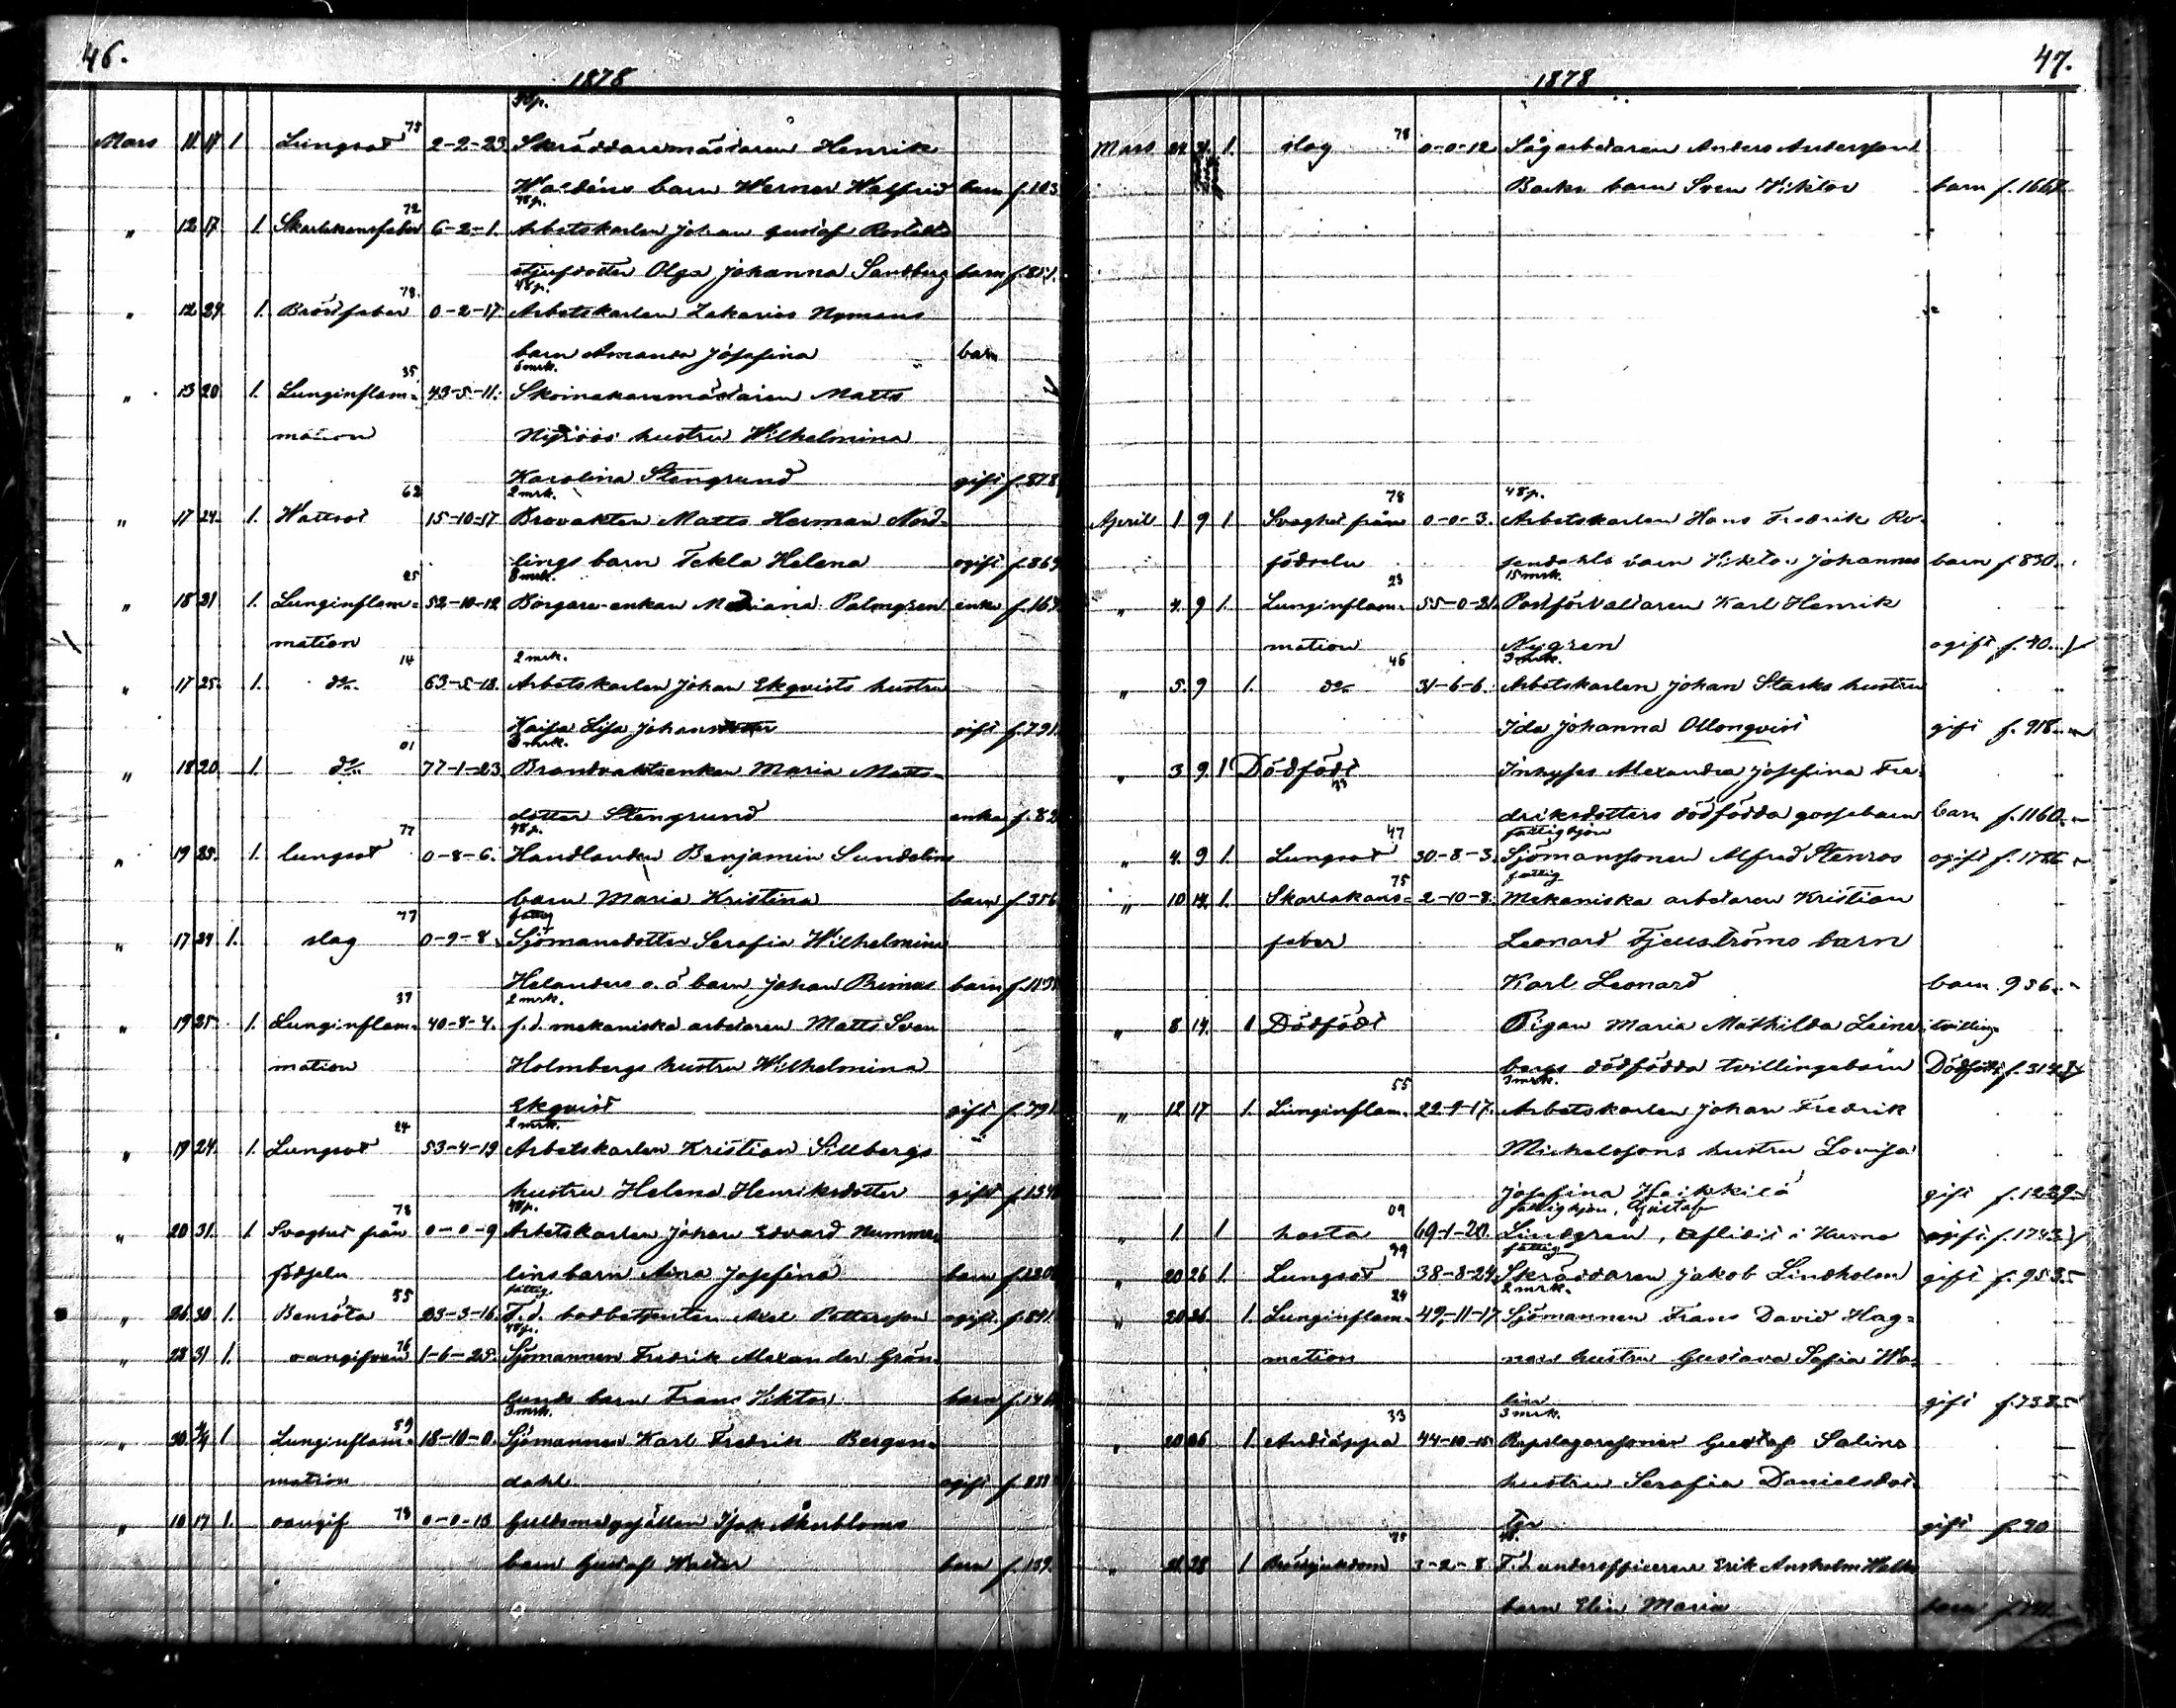 46.
1878
Mars 11 17 1 Lungsot 75 2-2-23 Skräddaremästaren Henrik
barn Werner Walfrid barn f. 103
" 12 17 1. 72 6-2-1. Arbetskarlen Johan Gustaf
48 p.
styfdotter Olga Johanna Sandberg barn
48 p.
" 12 24. 1. Bröstfeber 78. 0-2-17 Arbetskarlen Zakarias Nymans
barn Amanda Josefina barn
6 mrk.
" 13 20. 1. Lunginflam= 35 43-5-11. Skomakaremästaren Matts
mation hustru Wilhelmina
Karolina Stengrund gift f. 878
2 mrk.
" 17 24. 1. Wattsot 62 15-10-17 Brovakten Matts Herman Nord=
lings barn Tekla Helena ogift f. 869
8 mrk.
" 18 31 1. Lunginflam= 25 52-10-12 Borgare-enkan Palmgren enka f. 167
mation
2 mrk.
" 17 25. 1. do 14 63-5-18. Arbetskarlen Johan Ekqvists hustru
Kaisa Lisa Johansdotter gift f. 791.
3 mrk.
" 18 20 1. do 01 77-1-23 Brandvaktsenkan Maria Matts=
dotter Stengrund enka f. 82
48 p.
" 19 25. 1. lungsot 77 0-8-6. Handlanden Benjamin Sundelins
barn Maria Kristina barn f. 356
fattig
" 17 24 1. slag 77 0-9-8. Sjömansdotter Serafia Wilhelmina
Helanders o. ä barn Johan barn
2 mrk.
" 19 25. 1. Lunginflam= 37 40-8-4. f.d. mekaniska arbetaren Matts Sven
mation Holmbergs hustru Wilhelmina
Ekqvist gift f. 791.
2 mrk.
" 19 24. 1. Lungsot 24 53-4-19 Arbetskarlen Kristian Sillbergs
hustru Helena Henriksdotter gift
48 p.
" 20 31. 1. Svaghet från 78 0-0-9 Arbetskarlen Johan Edvard Numme=
födseln lins barn Aina Josefina barn
fattig
" 26 30 1. Benröta 55 23-3-16. F.d. bodbetjenten Axel Pettersson ogift. f. 841.
48 p.
" 28 31 1. oangifven 76 1-6-25. Sjömannen Fredrik Alexander Grön=
lunds barn Frans Viktor barn
3 mrk.
" 30. 1 Lunginflam= 59 18-10-0. Sjömannen Karl Fredrik Bergen=
mation dahl ogift
" 10 17 1. oangif 78 0-0-18 Guldsmedsgesällen Isak Åkerbloms
barn Gustaf Walter barn f. 139.
47.
1878
Mars 1. slag 78 0-0-12 Sågarbetaren Anders Andersson
Backs barn Sven Viktor barn
48 p.
April 1 9 1 Svaghet från 78 0-0-3. Arbetskarlen Hans Fredrik Ro=
födseln sendahls barn Viktor Johannes barn f. 830
15 mrk.
" 4. 9 1. Lunginflam= 23 55-0-21. Postförvaltaren Karl Henrik
mation Nygren ogift f. 40
3 mrk.
" 5. 9 1. do 46 31-6-6. Arbetskarlen Johan Starks hustru
Ida Johanna Ollonqvist gift f. 918
" 3 9 1 Dödfödt Inhyses Alexandra Josefina Fre=
33 driksdotters dödfödda gossebarn barn f. 1160
fattighjon
" 4. 9 1. Lungsot 47 30-8-3. Sjömanssonen Alfred Stenroos ogift
fattig
" 10 14. 1. Skarlakans= 75 2-10-8. Mekaniska arbetaren Kristian
feber Leonard Fjellströms barn
Karl Leonard barn 936
" 8 14. 1 Dödfödt Pigan Maria Mathilda Leine= tvilling
bergs dödfödda tvillingebarn Dödfödt
3 mrk.
" 12 17 1. Lunginflam. 55 22-9-17. Arbetskarlen Johan Fredrik
Michelssons hustru Lovisa
Josefina Haikkilä gift f. 1229
fattighjon, Gustaf
" 1. 1 hosta 09 69-1-20. Lindgren, afliden i f. 1743
fattig
" 20 26 1. Lungsot 39 38-8-24. Skräddaren Jakob Lindholm gift f. 953
2 mrk.
" 20 26. 1. Lunginflam= 24 49-11-17 Sjömannen Frans David Hag=
mation hustru Gustava Sofia Wa=
lin gift f. 738
3 mrk.
" 20 26 1. Andtäppa 33 44-10-15 Repslagaresonen Gustaf Salins
hustru Serafia Danielsdot=
ter gift f. 70
" 21 28 1 Bröstsjukdom 75 3-2-8. F.d. underofficeren Erik
barn Elin Maria barn